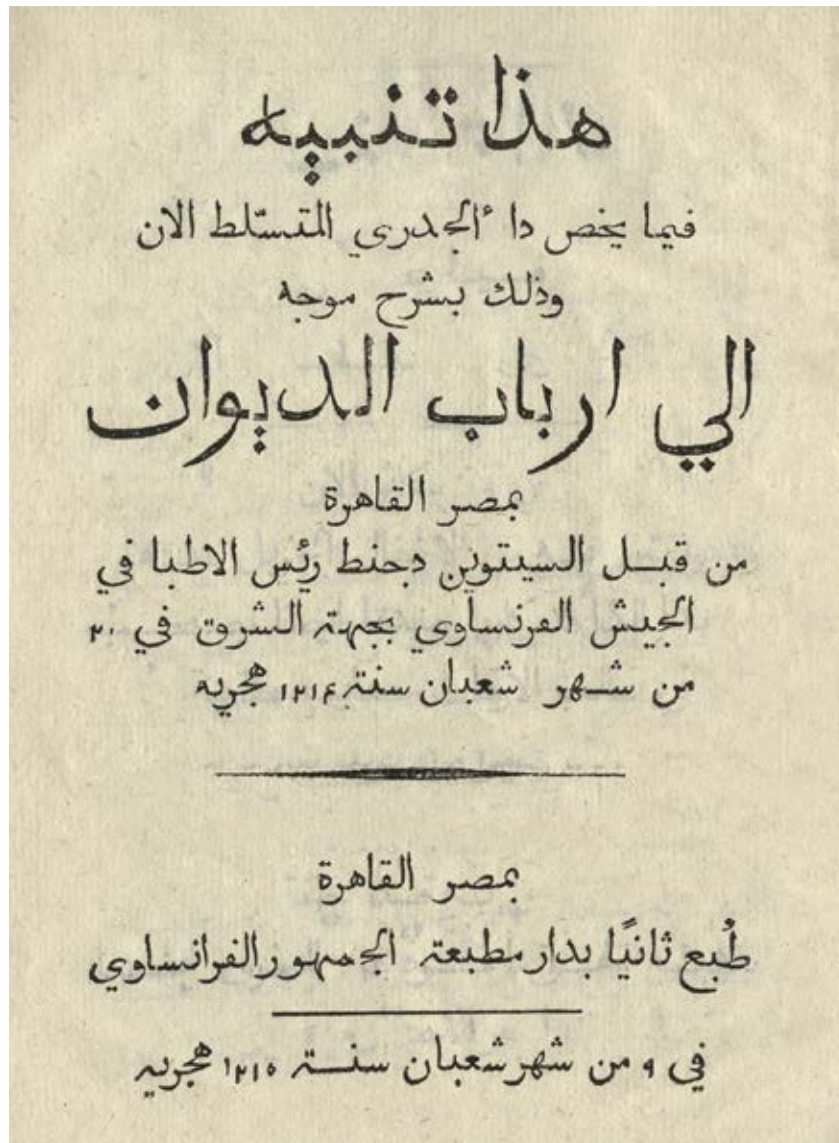 هذا تنبيه
فيما يخص داﺀ الجدري المتسلّط الان
وذلك بشرح موجه
الي ارباب الديوان
بمصر القاهرة
من قبل السيتوين دجنط رئس الاطبا في
الجيش الفرنساوي بجهة الشرق في ٢٠
من شهر شعبان سنة ١٢١٤ هجريه
بمصر القاهرة
طُبع ثانيًا بدار مطبعة الجمهور الفرانساوي
في ٩ من شهر شعبان سنة ١٢١٥ هجريه